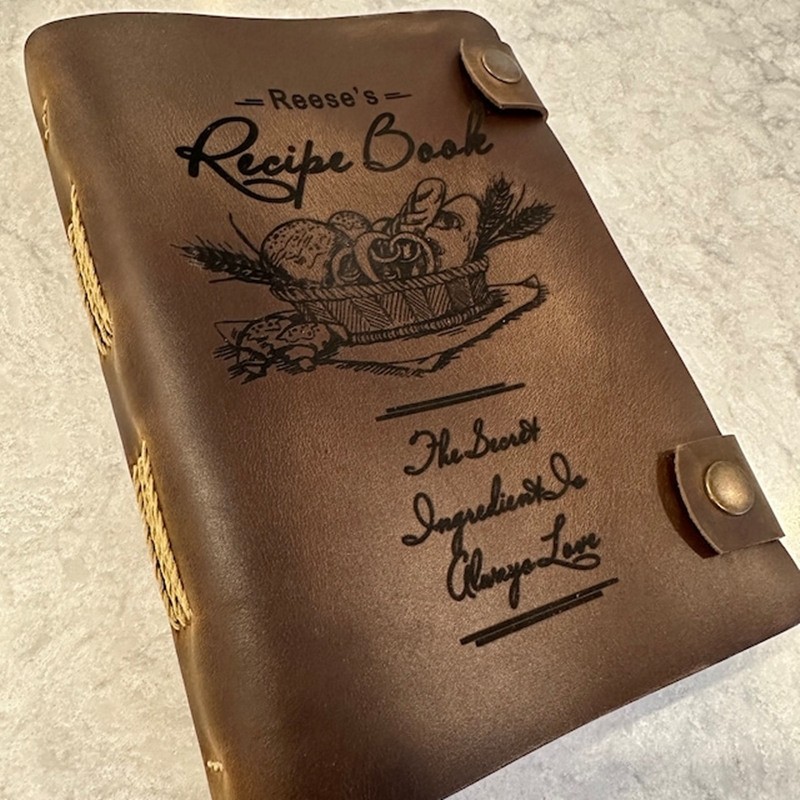 Reese's
Recipe Book
The Secret
Ingredient Is
Always Love